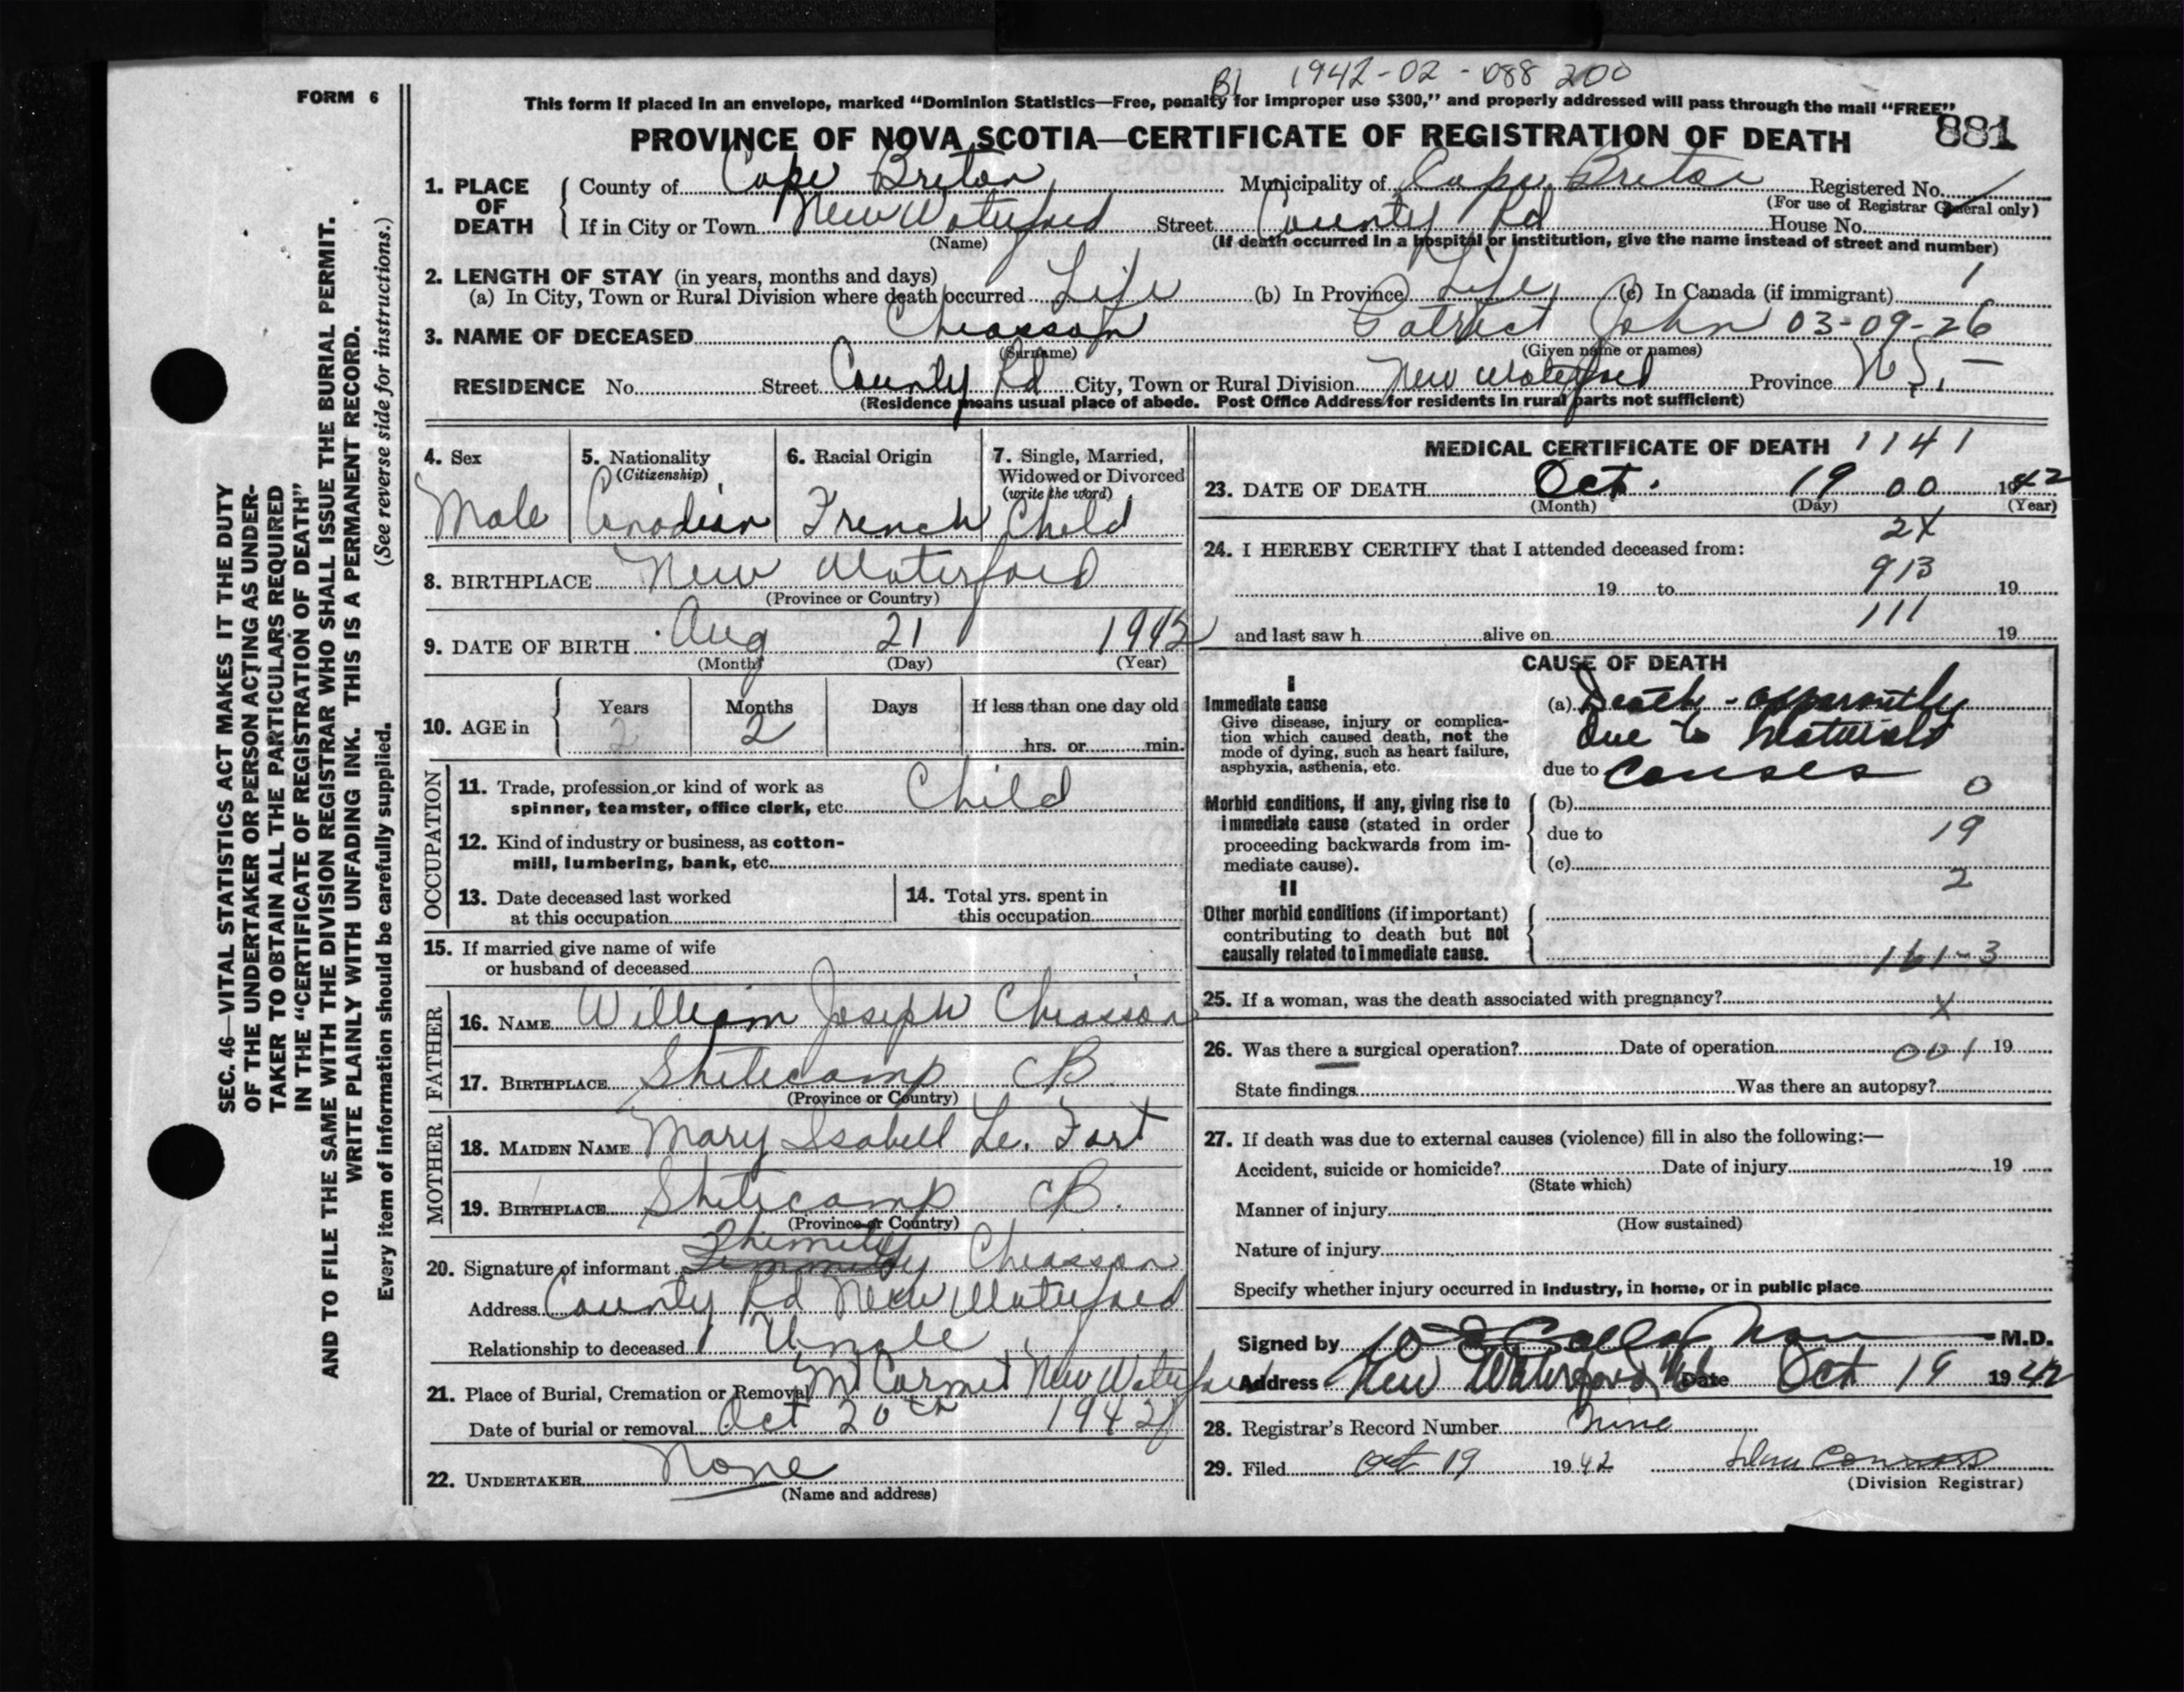 B1 1942-02-088 200
FORM 6
This form if placed in an envelope, marked "Dominion Statistics—Free, penalty for improper use $300," and properly addressed will pass through the mail "FREE"
PROVINCE OF NOVA SCOTIA—CERTIFICATE OF REGISTRATION OF DEATH 881
1. PLACE OF DEATH
County of Cape Breton Municipality of Cape Breton Registered No.
(For use of Registrar General only)
If in City or Town New Waterford Street County Rd House No.
(Name) (If death occurred in a hospital or institution, give the name instead of street and number)
2. LENGTH OF STAY (in years, months and days)
(a) In City, Town or Rural Division where death occurred Life (b) In Province Life (c) In Canada (if immigrant) 1
3. NAME OF DECEASED Chiasson Patrict John 03-09-26
(Surname) (Given name or names)
RESIDENCE No. Street County Rd City, Town or Rural Division New Waterford Province N S. —
(Residence means usual place of abode. Post Office Address for residents in rural parts not sufficient)
4. Sex
Male
5. Nationality
(Citizenship)
Canadian
6. Racial Origin
French
7. Single, Married,
Widowed or Divorced
(write the word)
Child
8. BIRTHPLACE New Waterford
(Province or Country)
9. DATE OF BIRTH Aug 21 1942
(Month) (Day) (Year)
10. AGE in Years Months Days If less than one day old
2 2 hrs. or min.
OCCUPATION
11. Trade, profession, or kind of work as
spinner, teamster, office clerk, etc. Child
12. Kind of industry or business, as cotton-
mill, lumbering, bank, etc.
13. Date deceased last worked
at this occupation
14. Total yrs. spent in
this occupation
15. If married give name of wife
or husband of deceased
FATHER
16. NAME William Joseph Chiasson
17. BIRTHPLACE Shetecamp CB.
(Province or Country)
MOTHER
18. MAIDEN NAME Mary Isabell Le. Fort
19. BIRTHPLACE Shetecamp CB.
(Province or Country)
20. Signature of informant Chiasson
Address County Rd New Waterford
Relationship to deceased Uncle
21. Place of Burial, Cremation or Removal Mt Carmel New Waterford
Date of burial or removal Oct 20th 1942
22. UNDERTAKER None
(Name and address)
MEDICAL CERTIFICATE OF DEATH 1141
23. DATE OF DEATH Oct. 19 00 1942
(Month) (Day) (Year)
2X
24. I HEREBY CERTIFY that I attended deceased from:
913
19 to 19
111
and last saw h alive on 19
CAUSE OF DEATH
I
Immediate cause
Give disease, injury or complica-
tion which caused death, not the
mode of dying, such as heart failure,
asphyxia, asthenia, etc.
(a) Death - apparently
due to Natural
due to causes
Morbid conditions, if any, giving rise to
immediate cause (stated in order
proceeding backwards from im-
mediate cause).
0
(b)
due to 19
(c)
2
II
Other morbid conditions (if important)
contributing to death but not
causally related to immediate cause.
161-3
25. If a woman, was the death associated with pregnancy? X
26. Was there a surgical operation? Date of operation 001 19
State findings Was there an autopsy?
27. If death was due to external causes (violence) fill in also the following:—
Accident, suicide or homicide? Date of injury 19
(State which)
Manner of injury
(How sustained)
Nature of injury
Specify whether injury occurred in industry, in home, or in public place
Signed by M.D.
Address New Waterford Date Oct 19 1942
28. Registrar's Record Number nine
29. Filed Oct 19 1942
(Division Registrar)
SEC. 46—VITAL STATISTICS ACT MAKES IT THE DUTY
OF THE UNDERTAKER OR PERSON ACTING AS UNDER-
TAKER TO OBTAIN ALL THE PARTICULARS REQUIRED
IN THE "CERTIFICATE OF REGISTRATION OF DEATH"
AND TO FILE THE SAME WITH THE DIVISION REGISTRAR WHO SHALL ISSUE THE BURIAL PERMIT.
WRITE PLAINLY WITH UNFADING INK. THIS IS A PERMANENT RECORD.
Every item of information should be carefully supplied. (See reverse side for instructions.)